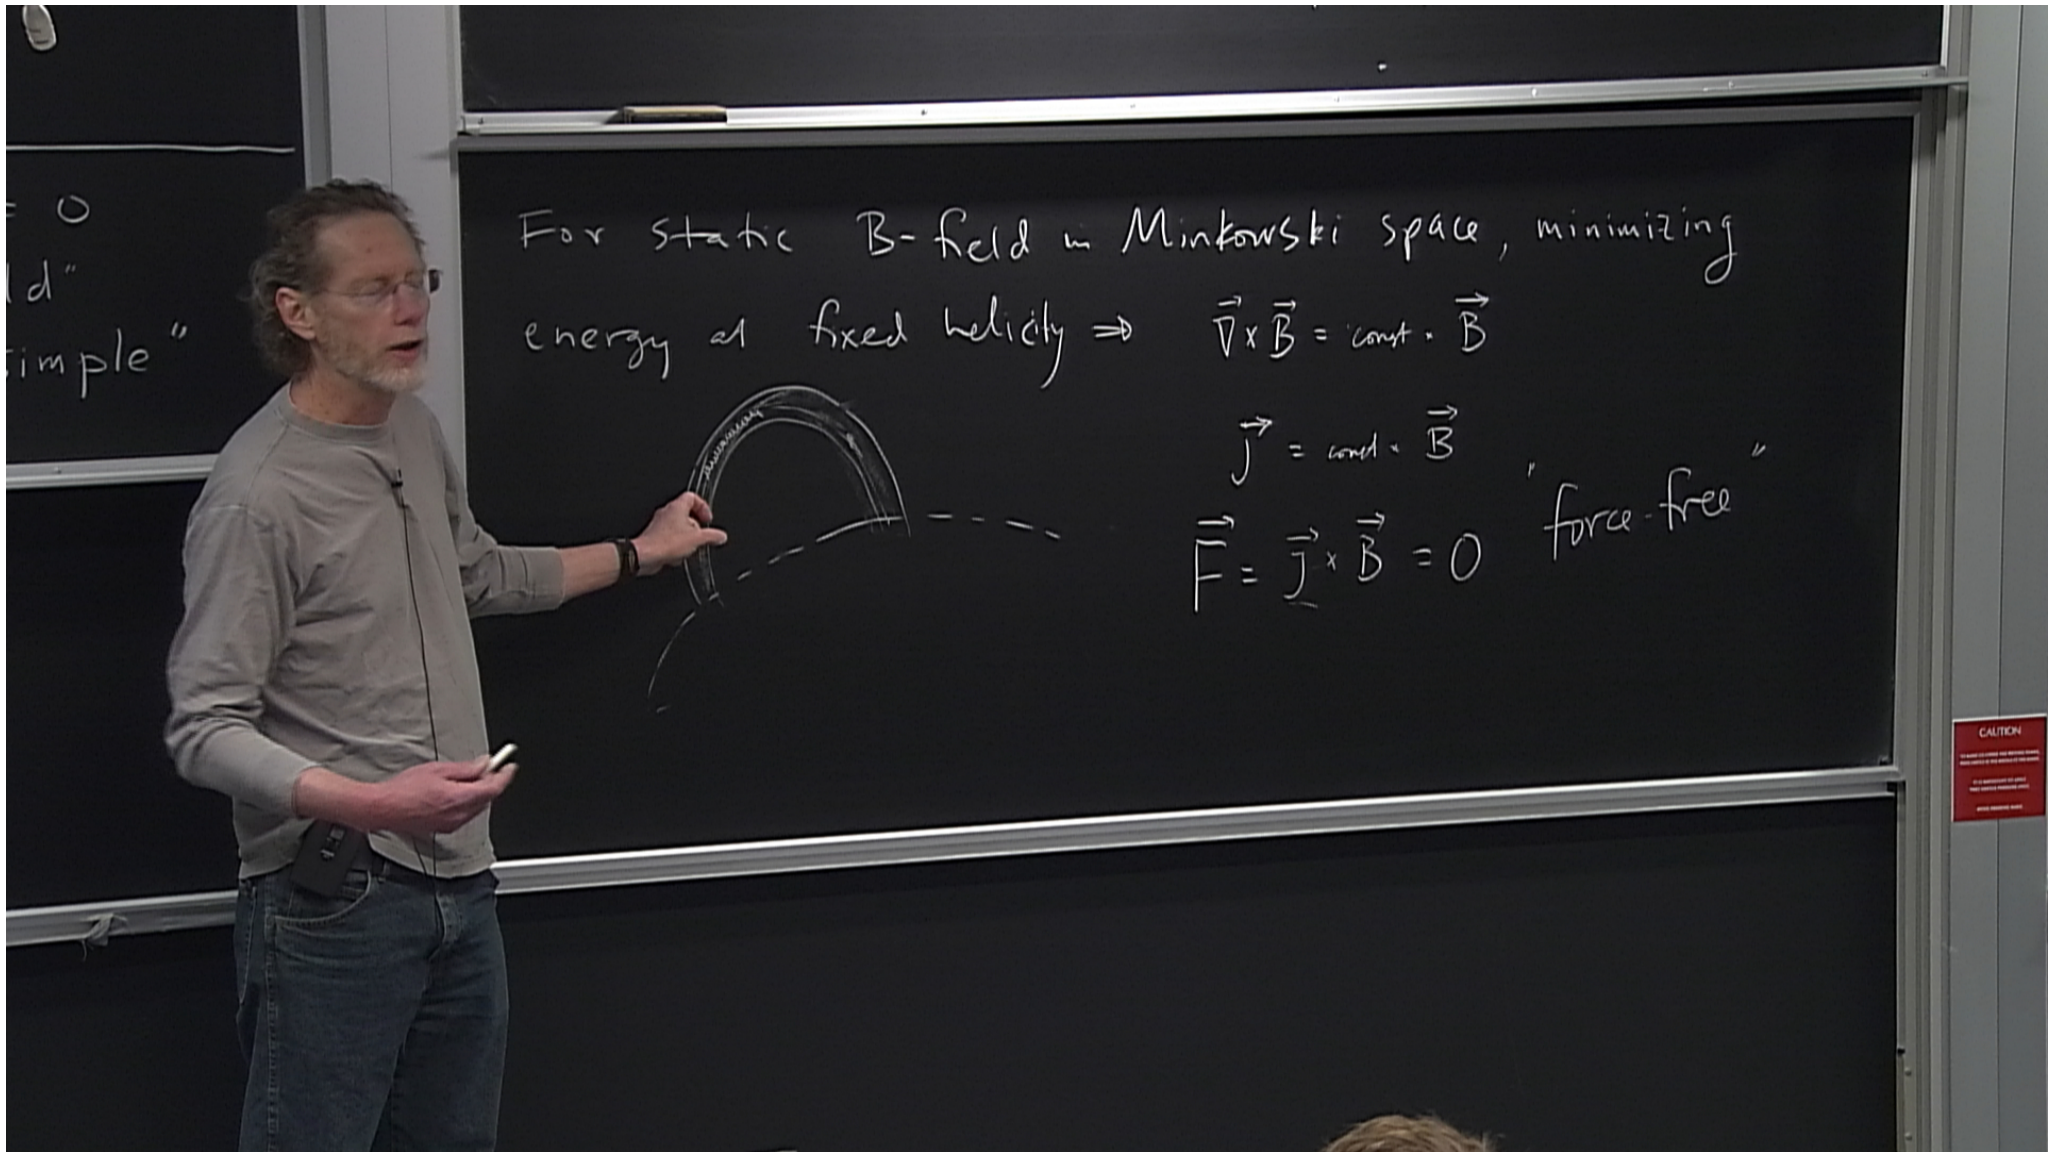 = 0
ld"
simple"
For static B-field in Minkowski space, minimizing
energy at fixed helicity ⇒ ∇⃗ × B⃗ = const · B⃗
J⃗ = const · B⃗
F⃗ = J⃗ × B⃗ = 0 "force-free"
CAUTION